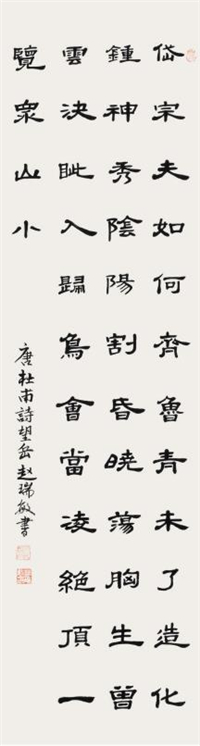 岱宗夫如何齊魯青未了造化
鍾神秀陰陽割昏曉蕩胸生曾
雲決眦入歸鳥會當凌絕頂一
覽眾山小
唐杜甫詩望岳赵瑞敏書